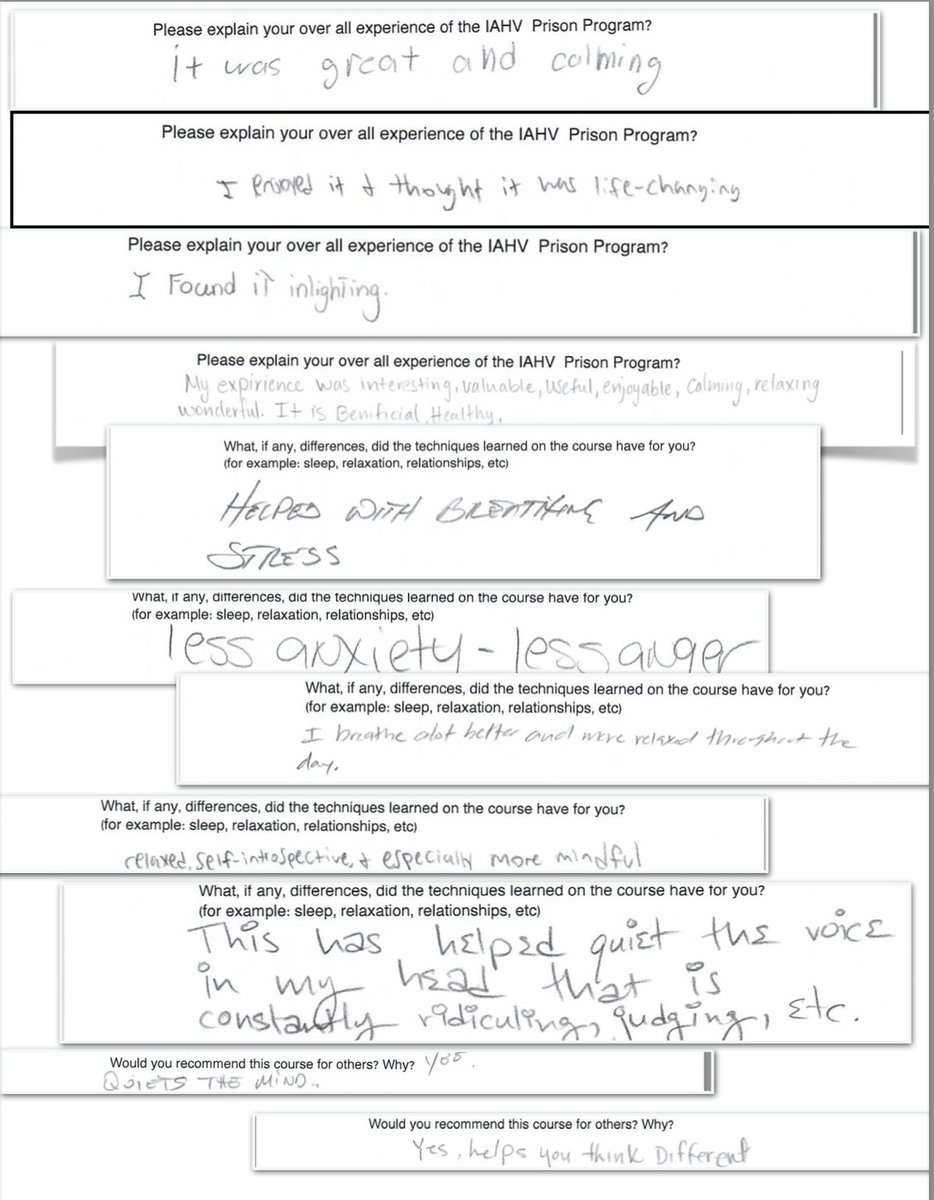 Please explain your over all experience of the IAHV Prison Program?
it was great and calming
Please explain your over all experience of the IAHV Prison Program?
I enjoyed it & thought it was life-changing
Please explain your over all experience of the IAHV Prison Program?
I Found it inlighting.
Please explain your over all experience of the IAHV Prison Program?
My expirience was interesting, valuable, useful, enjoyable, Calming, relaxing
wonderful. It is Benificial, Healthy.
What, if any, differences, did the techniques learned on the course have for you?
(for example: sleep, relaxation, relationships, etc)
HELPED WITH BREATHING AND
STRESS
What, if any, differences, did the techniques learned on the course have for you?
(for example: sleep, relaxation, relationships, etc)
less anxiety - less anger
What, if any, differences, did the techniques learned on the course have for you?
(for example: sleep, relaxation, relationships, etc)
I breathe alot better and more relaxed throughout the
day.
What, if any, differences, did the techniques learned on the course have for you?
(for example: sleep, relaxation, relationships, etc)
relaxed, self-introspective, & especially more mindful
What, if any, differences, did the techniques learned on the course have for you?
(for example: sleep, relaxation, relationships, etc)
This has helped quiet the voice
in my head that is
constantly ridiculing, judging, etc.
Would you recommend this course for others? Why? yes.
QUIETS THE MIND..
Would you recommend this course for others? Why?
Yes, helps you think Different